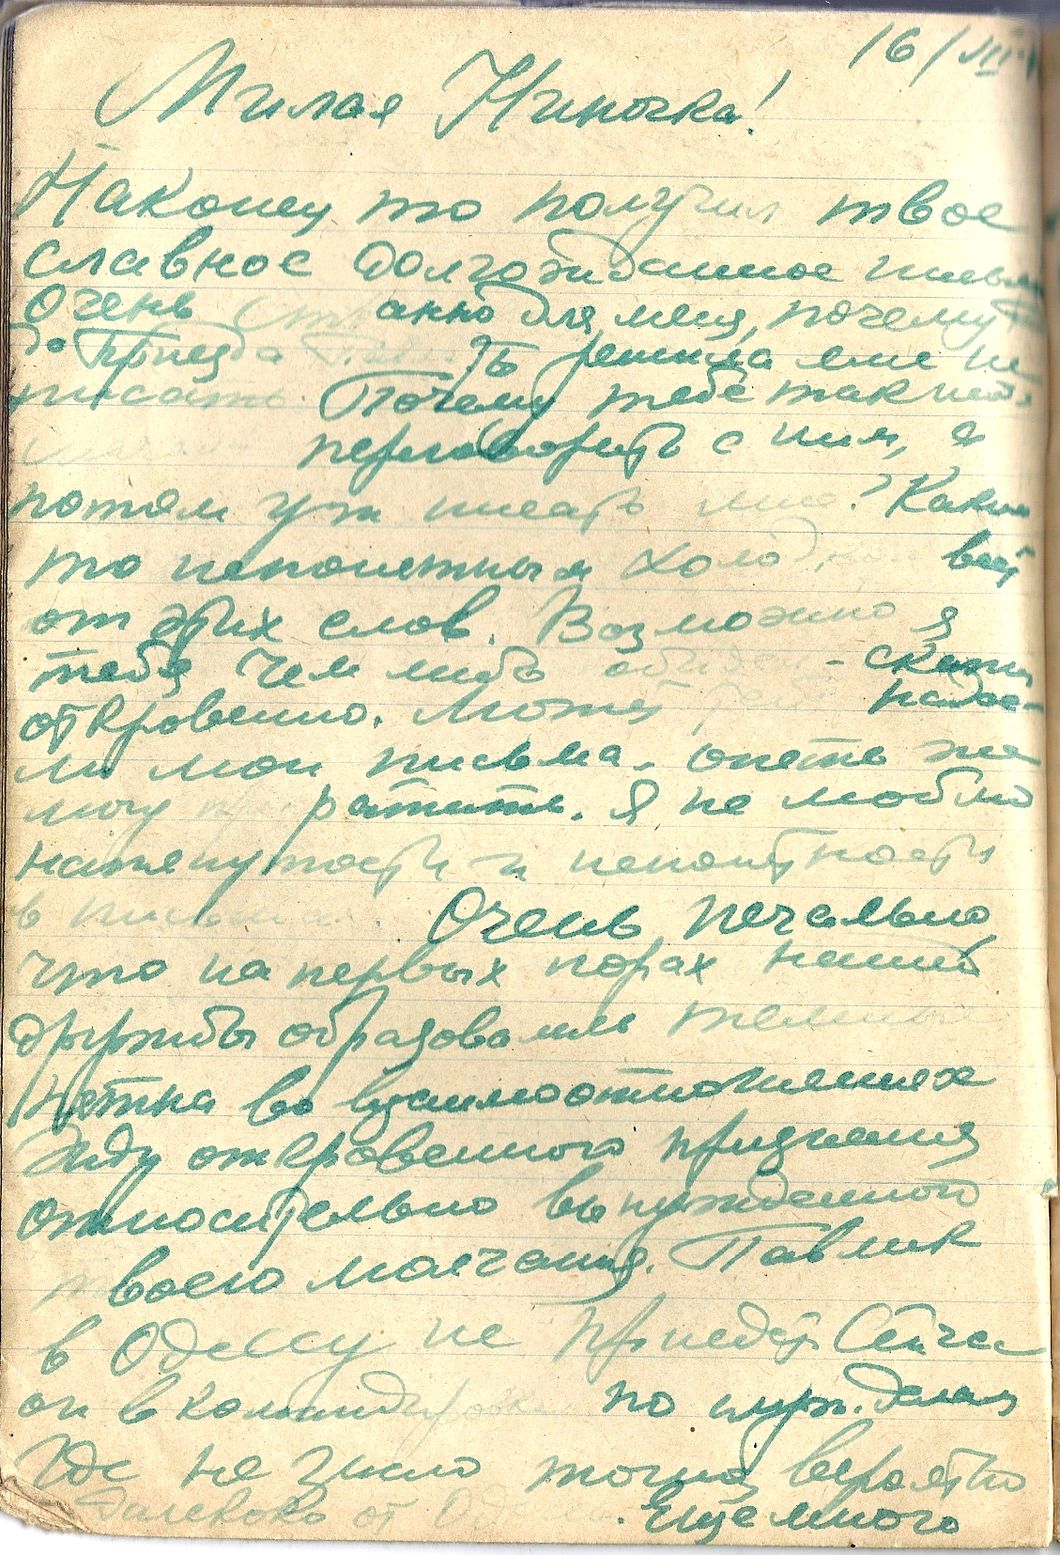 16/III
Милая Ниночка!
Наконец то получил твое
славное долгожданное письмо
Очень странно для меня, почему ты
до приезда решила мне не
писать. Почему тебе так
переговорить с ним, а
потом уж писать мне? Каким
то непонятным холодком веет
от этих слов. Возможно я
тебя чем либо обидел - скажи
откровенно. Может тебе надое-
ли мои письма. опять же
могу прекратить. Я не люблю
натянутости и непонятности
в письмах. Очень печально,
что на первых порах нашей
дружбы образовались темные
пятна во взаимоотношениях
Жду откровенного признания
относительно вынужденного
твоего молчания. Павлик
в Одессу не приедет. Сейчас
он в командировке по служ. делам
Где не знаю точно, вероятно
далеко от Одессы. Еще много